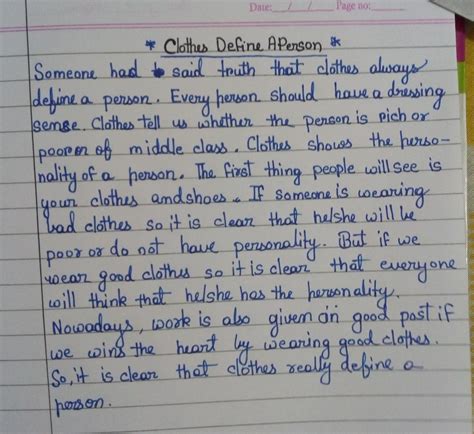 Date: __/__/__ Page no:____
* Clothes Define A Person *
Someone had said truth that clothes always
define a person. Every person should have a dressing
sense. Clothes tell us whether the person is rich or
poor or of middle class. Clothes shows the perso-
nality of a person. The first thing people will see is
your clothes and shoes. If someone is wearing
bad clothes so it is clear that he/she will be
poor or do not have personality. But if we
wear good clothes so it is clear that everyone
will think that he/she has the personality.
Nowadays, work is also given on good post if
we wins the heart by wearing good clothes.
So, it is clear that clothes really define a
person.